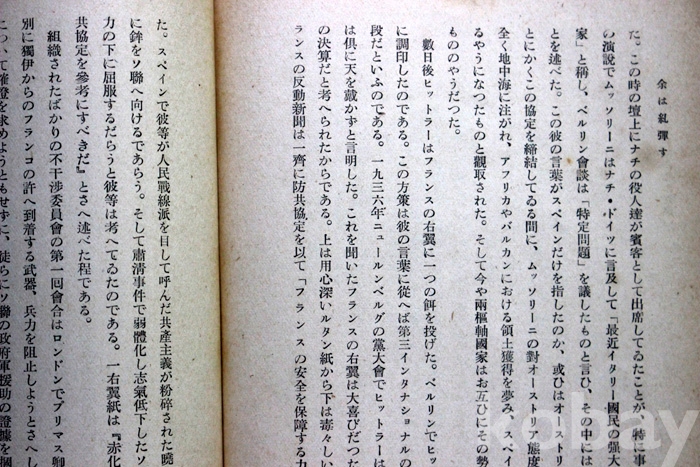 余は糺彈す
た。この時の壇上にナチの役人達が賓客として出席してゐたことが、特に事
の演說でムッソリーニはナチ・ドイツに言及して「最近イタリー國民の强大
家」と稱し、ベルリン會談は「特定問題」を議したものと言ひ、その中には
とを述べた。この彼の言葉がスペインだけを指したのか、或ひはオーストリ
とにかくこの協定を締結してゐる間に、ムッソリーニの對オーストリ 態度
全く地中海に注がれ、アフリカやバルカンにおける領土獲得を夢み、スペイ
るやうになつたものと觀取された。そして今や兩樞軸國家はお互ひにその勢
もののやうだつた。
數日後ヒットラーはフランスの右翼に一つの餌を投げた。ベルリンでヒッ
に調印したのである。この方策は彼の言葉に從へば第三インタナショナルの
段だといふのである。一九三六年ニュールンベルグの黨大會でヒットラーは
は俱に天を戴かずと言明した。これを聞いたフランスの右翼は大喜びだつた
の決算だと考へられたからである。上は用心深いルタン紙から下は毒々しい
ランスの反動新聞は一齊に防共協定を以て「フランスの安全を保障する力
た。スペインで彼等が人民戰線派を目して呼んだ共產主義が粉碎された曉
に鉾をソ聯へ向けるであらう。そして肅淸事件で弱體化し志氣低下したソ
力の下に屈服するだらうと彼等は考へてゐたのである。一右翼紙は『赤化
共協定を參考にすべきだ』とさへ述べた程である。
組織されたばかりの不干涉委員會の第一回會合はロンドンでプリマス卿
別に獨伊からのフランコの許へ到着する武器、兵力を阻止しようとさへし
について確證を求めようともせずに、徒らにソ聯の政府軍援助の證據を
kobay